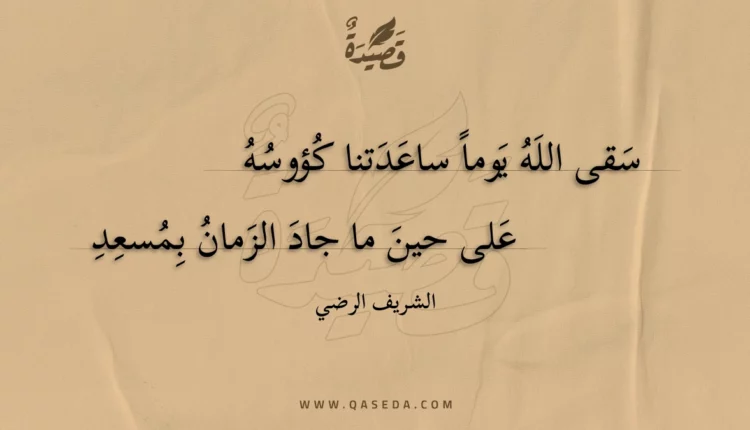 قَصِيْدَةٌ
سَقى اللَهُ يَوماً ساعَدَتنا كُؤوسُهُ
عَلى حينَ ما جادَ الزَمانُ بِمُسعِدِ
الشريف الرضي
WWW.QASEDA.COM